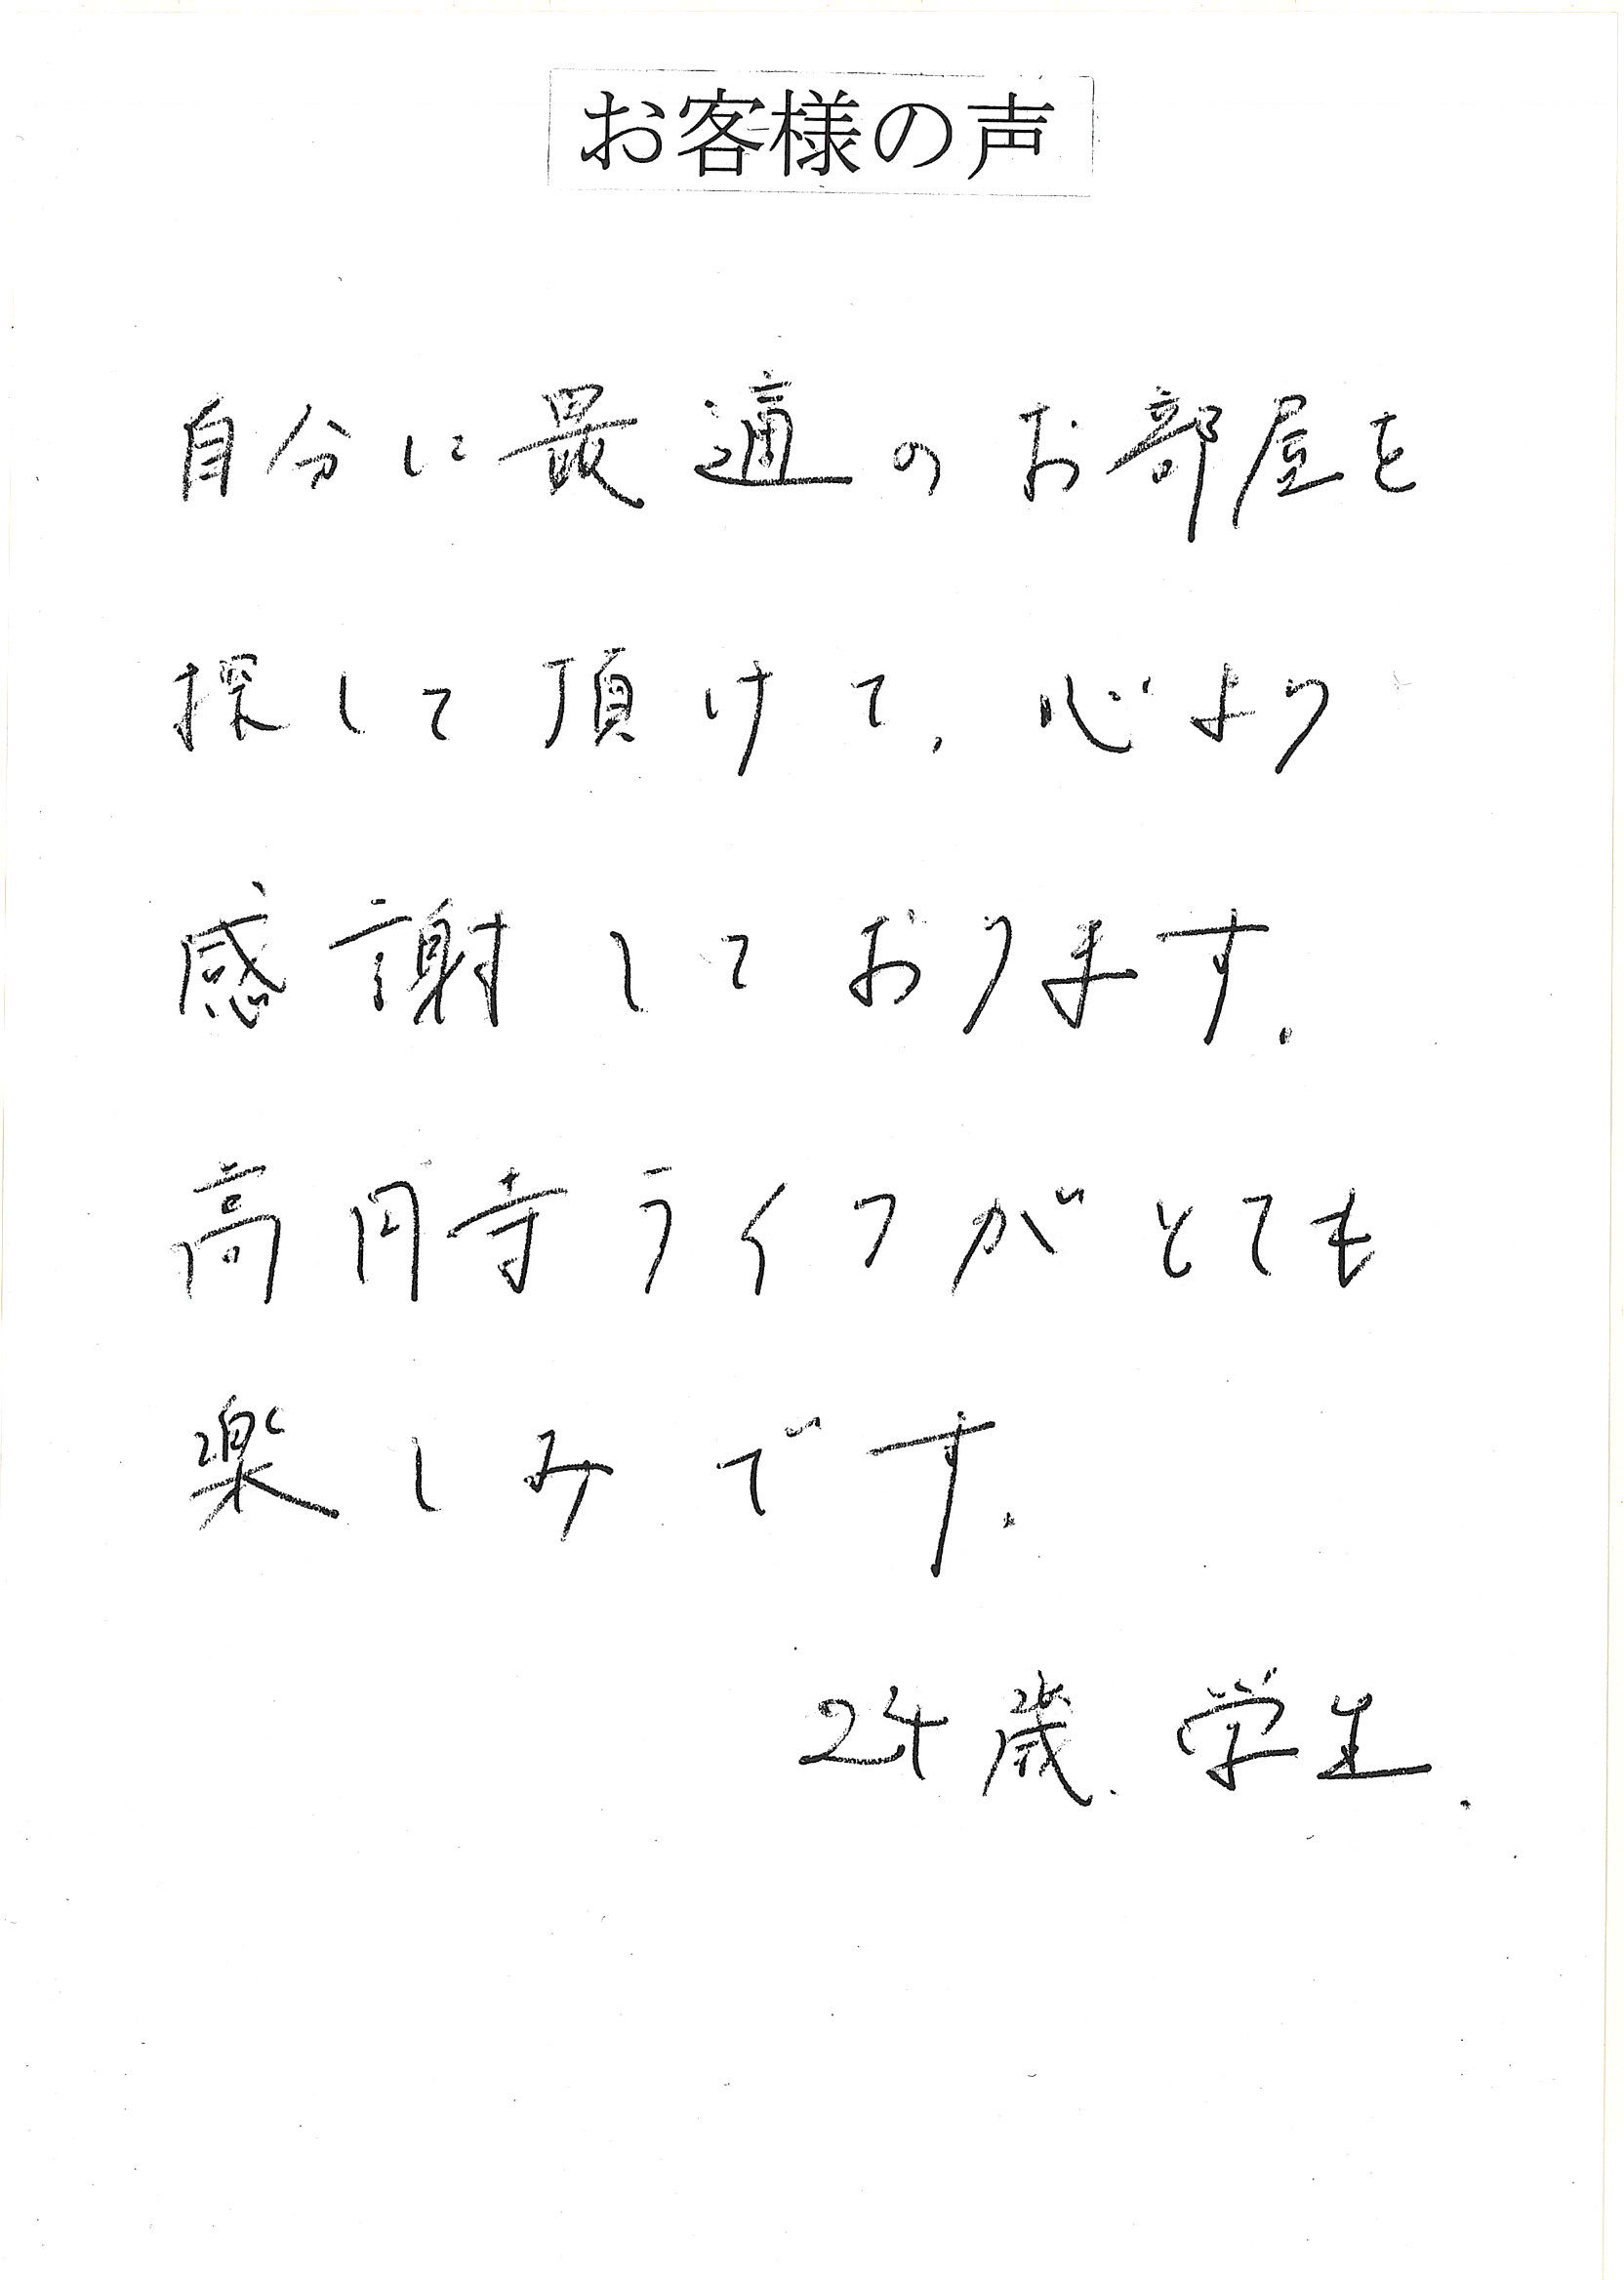 お客様の声
自分に最適のお部屋を
探して頂けて、心より
感謝しております。
高円寺ライフがとても
楽しみです。
24歳、学生.